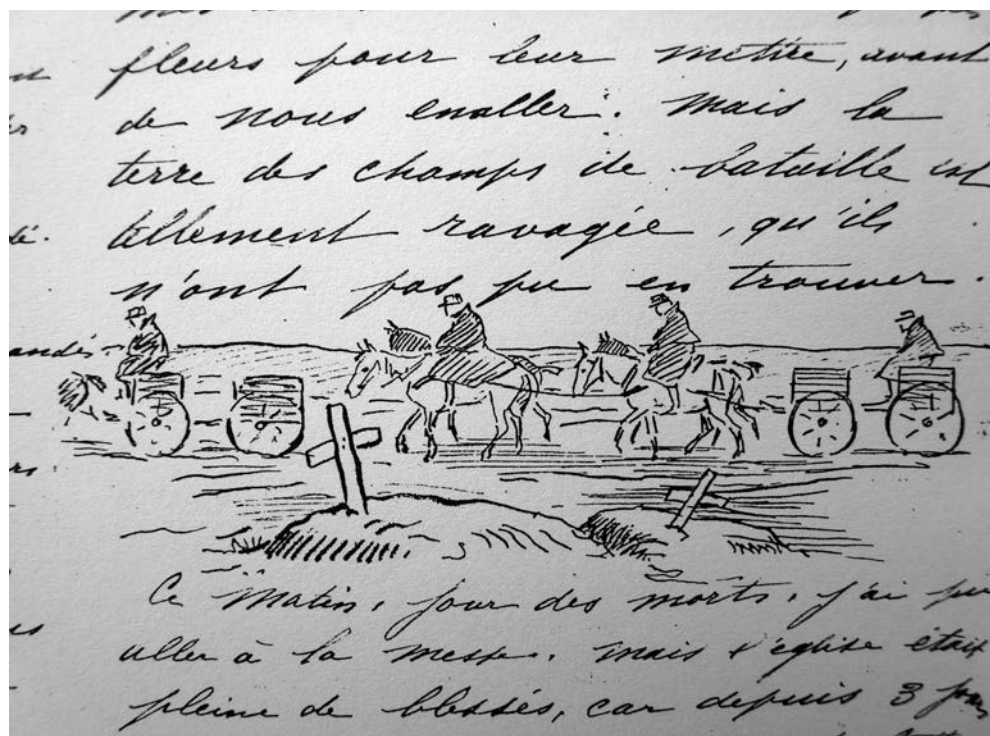 fleurs pour leur mettre, avant
de nous enaller. Mais la
terre des champs de bataille est
tellement ravagée, qu'ils
n'ont pas pu en trouver.
Ce Matin, jour des morts, j'ai pu
aller à la messe. mais l'église était
pleine de blessés, car depuis 3 jours